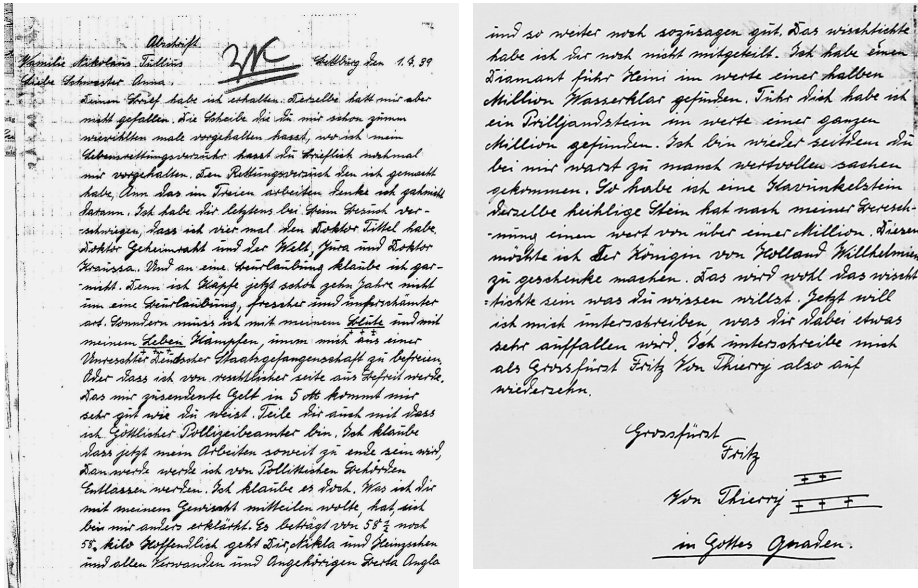 Abschrift.
Familie Nikolaus Tullius
Liebe Schwester Anna
Deinen Brief habe ich erhalten. Derselbe hatt mir aber
nicht gefallen. Die Scheibe die du mir schon zumm
wievihlten male vorgehalten hasst, wo ich mein
Lebensrettungsverzuhr hasst du brieflich nochmal
mir vorgehalten. Den Rettungsverzuch den ich gemacht
habe, Ann das im Freien arbeiten denke ich garnicht
darann. Ich habe dir letztens bei Deim Besuch ver-
schwiegen, dass ich vier mal den Doktor Tittel habe.
Doktor Geheimraht und der Welt, Jura und Doktor
Kraussa. Und an eine Beurlaubung klaube ich gar-
nicht. Denn ich Kapfe jetzt schon zehn Jahre nicht
um eine Beurlaubung, frescher und unferschämter
art. Sonndern muss ich mit meinem Blute und mit
meinem Leben Kampfen, imm mich aus einer
Unreschter Deutscher Staatsgefangenschaft zu befreien,
Oder dass ich von reschtlicher seite aus befreit werde.
Das mir zusendente Gelt in 5 M kommt mir
sehr gut wie du weist. Teile dir auch mit dass
ich Göttlicher Pollizeibeamter bin. Ich klaube
dass jetzt mein Arbeiten soweit zu ende sein wird,
Dan werde werde ich von Pollittischen Behörden
Entlassen werden. Ich klaube es doch. Was ich dir
mit meinem Gewischt mitteilen wolte, hat sich
bei mir anders erklährt. Es beträgt von 58 ½ noch
58. kilo Hoffendlich geht Dir, Nikla und Heinzschen
und allen Verwanden und Angehörigen Berta Angla
und so weiter noch sozusagen gut. Das wischtichte
habe ich dir noch nicht mitgeteilt. Ich habe einen
Diamant führ Heini im werte einer halben
Million Wasserklar gefunden. Führ dich habe ich
ein Prilljandstein im werte einer ganzen
Million gefunden. Ich bin wieder seitdem du
bei mir warst zu manch wertvollen sachen
gekommen. So habe ich eine Kavunkelstein
derselbe heihlige Stein hat nach meiner beresch-
nung einen wert von uber einer Million. Diesen
möchte ich Der Königen von Holland Willhelmien
zu geschenke machen. Das wird wohl das wischt
tichte sein was du wissen willst. Jetzt will
ich mich unterschreiben, was dir dabei etwas
sehr auffallen wird. Ich unterschreibe mich
als Grossfürst Fritz Von Thierry also auf
wiedersehn.
Grossfürst
Fritz
Von Thierry
in Gottes Gnaden.